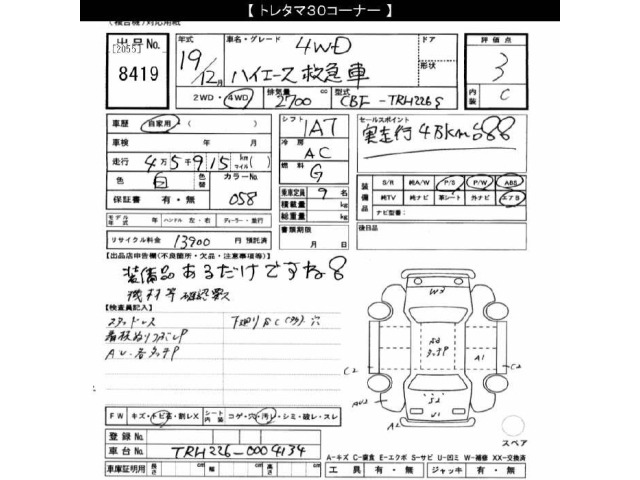 【 トレタマ30コーナー 】
(複合機)対応用紙
出品No. [2055] 8419
年式 19/12月
車名・グレード 4WD ハイエース 救急車
ドア 形状
評価点 3
内装 C
2WD・4WD 排気量 2700 cc 型式 CBF-TRH226S
車歴 自家用 ( )
車検 年 月
走行 4万5千915 km マイル ( )
色 白 色替 カラーNo. 058
保証書 有・無
シフト 1AT
冷房 AC
燃料 G
乗車定員 9 名
積載量 kg
総重量 kg
セールスポイント
実走行 45km
装備品 S/R 純A/W P/S P/W ABS
純TV 純ナビ 革シート 外ナビ エアB
ナビ型番:
モデル年式 年 ハンドル 左・右 ディーラー・並行
書類期限 月 日
後日品
リサイクル料金 13900 円 預託済
【出品店申告欄(不良箇所・欠品・注意事項等)】
装備品あるだけですね
機材等確認款
【検査員記入】
スタッドレス 下廻りSC(アナ)穴
看板ぬりつぶしP
AU・各タッチP
W3
A1
C2 C2
AU2
A2
U1
FW キズ・トビ石・割レX シート内装 コゲ・穴・汚レ・シミ・破レ・スレ
スペア
登録No.
車台No. TRH226-0004134
A-キズ C-腐食 E-エクボ S-サビ U-凹ミ W-補修 XX-交換済
車庫証明用 長さ cm 幅 cm 高さ cm 工具 有・無 ジャッキ 有・無